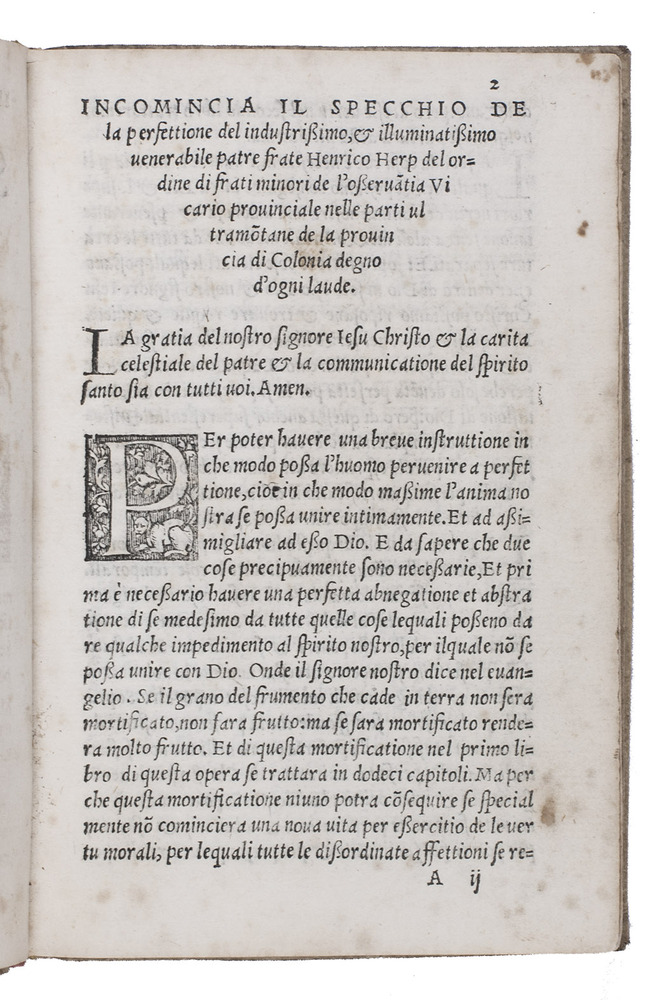 2
INCOMINCIA IL SPECCHIO DE
la perfettione del induſtrißimo,& illuminatißimo
uenerabile patre frate Henrico Herp del or=
dine di frati minori de l'oßeruãtia Vi
cario prouinciale nelle parti ul
tramõtane de la prouin
cia di Colonia degno
d'ogni laude.
LA gratia del noſtro ſignore Ieſu Chriſto & la carita
celeſtiale del patre & la communicatione del ſpirito
ſanto ſia con tutti uoi. Amen.
PEr poter hauere una breue inſtruttione in
che modo poßa l'huomo peruenire a perfet
tione,cioe in che modo maßime l'anima no
ſtra ſe poßa unire intimamente.Et ad aßi=
migliare ad eßo Dio. E da ſapere che due
coſe precipuamente ſono neceßarie,Et pri
ma è neceßario hauere una perfetta abnegatione et abſtra
tione di ſe medeſimo da tutte quelle coſe lequali poßeno da
re qualche impedimento al ſpirito noſtro,per ilquale nõ ſe
poßa unire con Dio. Onde il ſignore noſtro dice nel euan=
gelio. Se il grano del frumento che cade in terra non ſera
mortificato,non fara frutto:ma ſe ſara mortificato rende=
ra molto frutto. Et di queſta mortificatione nel primo li=
bro di queſta opera ſe trattara in dodeci capitoli. Ma per
che queſta mortificatione niuno potra cõſequire ſe ſpecial
mente nõ cominciera una noua uita per eßercitio de le uer
tu morali, per lequali tutte le dißordinate affettioni ſe re=
A ij